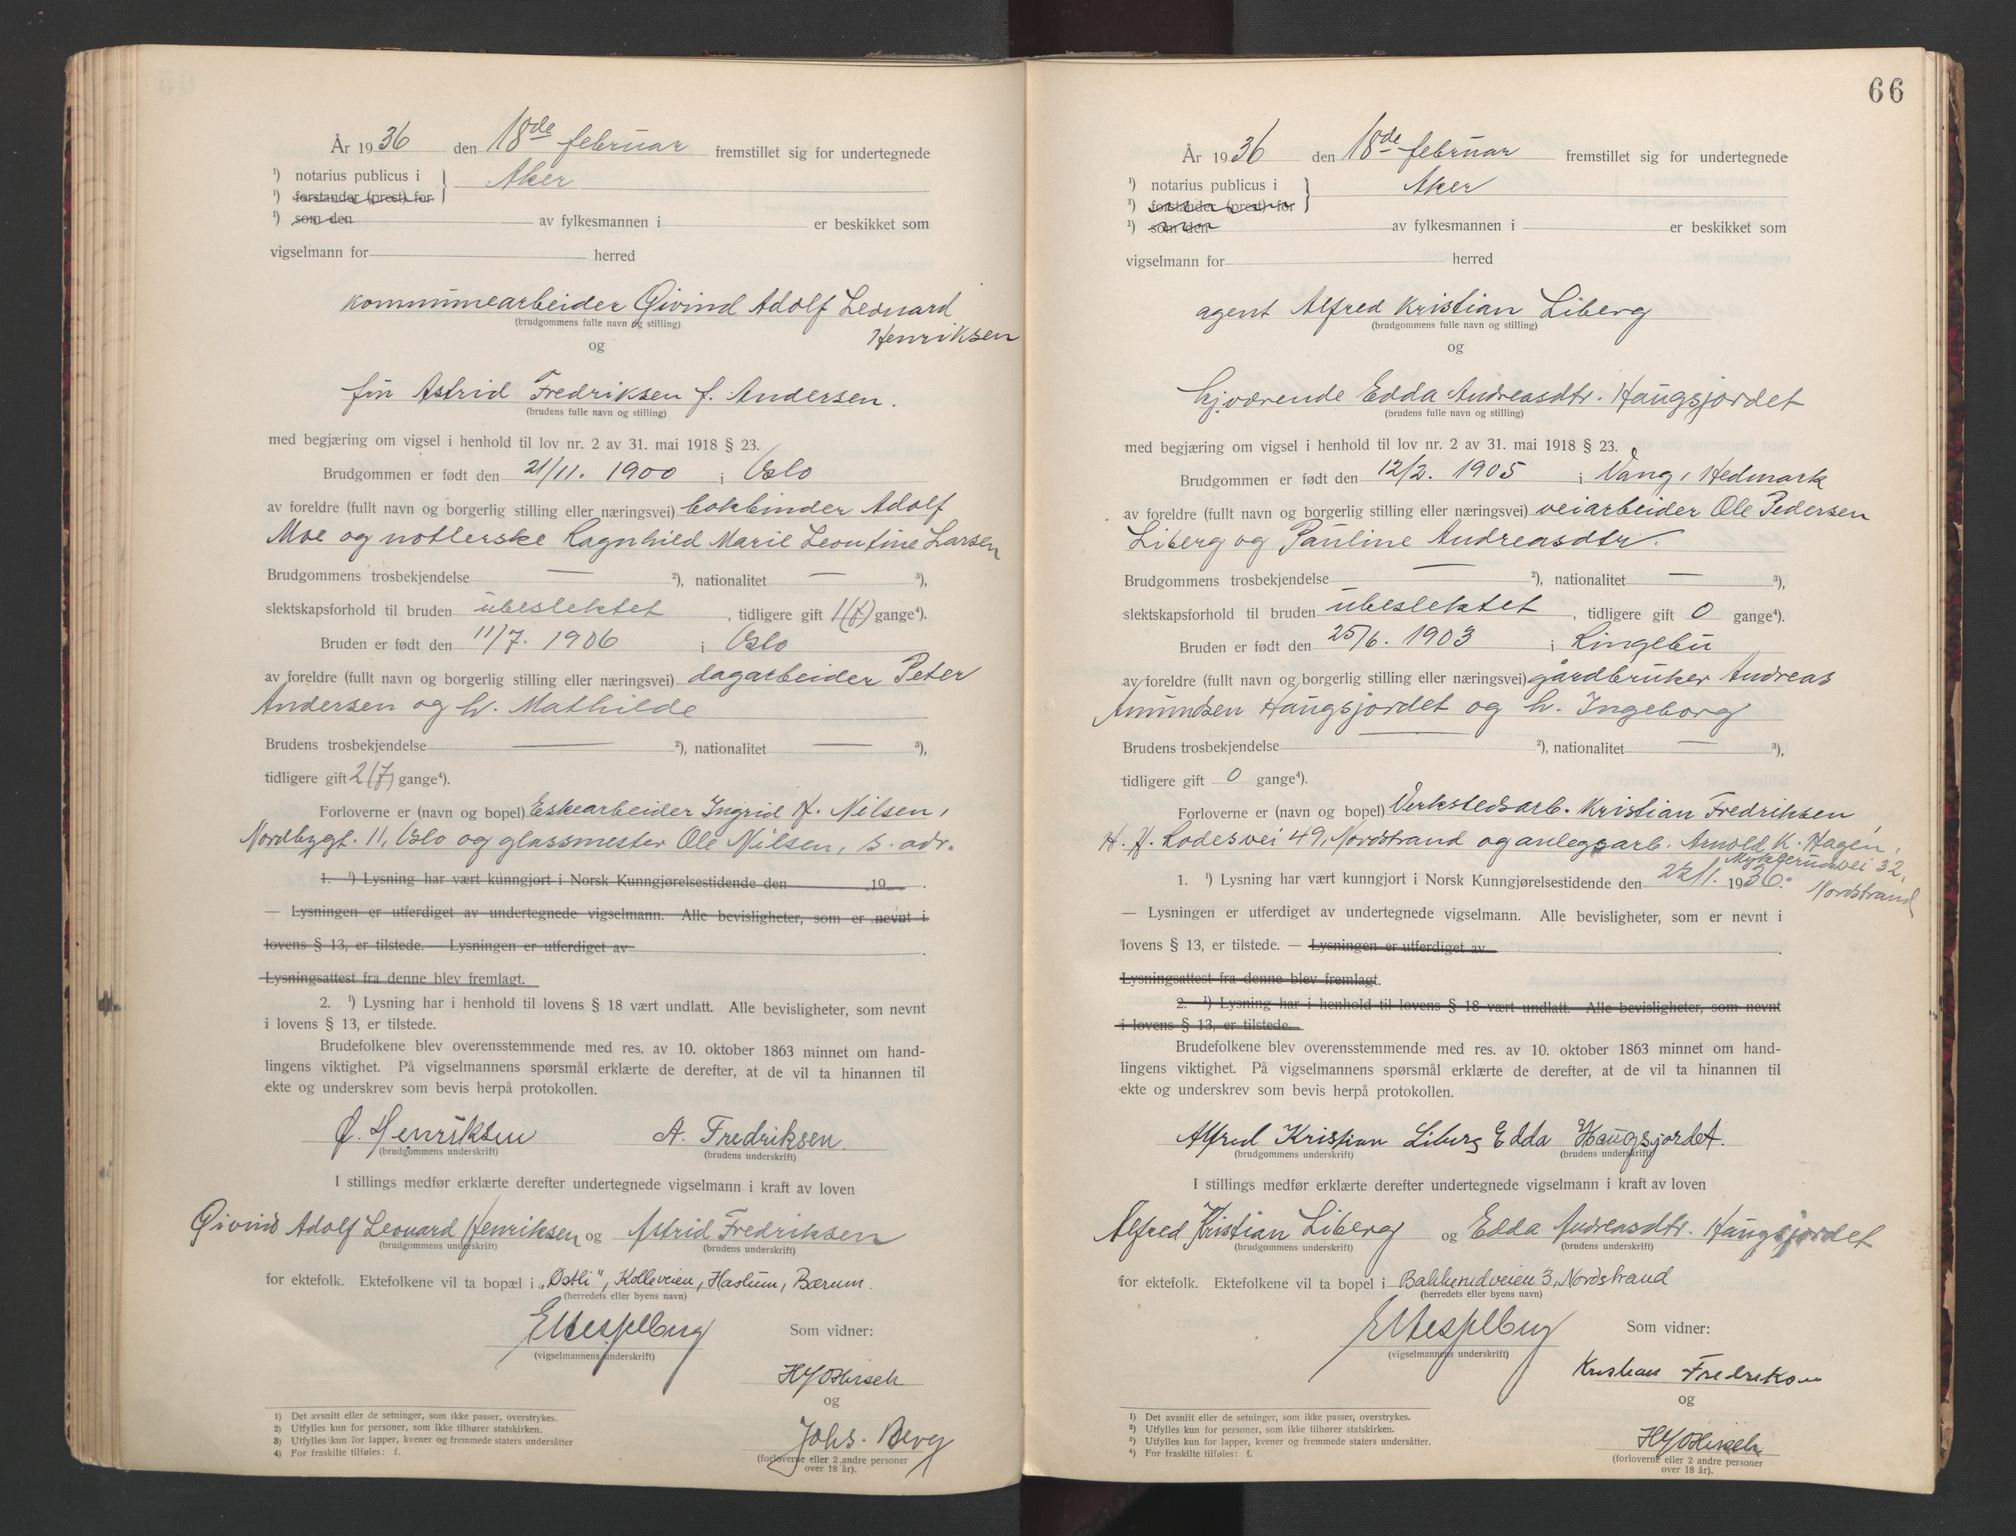 År 1936 den 18de februar fremstillet sig for undertegnede
¹) notarius publicus i Aker
¹) forstander (prest) for
¹) som den av fylkesmannen i er beskikket som
vigselmann for herred
kommunearbeider Øivind Adolf Leonard
(brudgommens fulle navn og stilling)
Henriksen
og
fru Astrid Fredriksen f. Andersen.
(brudens fulle navn og stilling)
med begjæring om vigsel i henhold til lov nr. 2 av 31. mai 1918 § 23.
Brudgommen er født den 21/11. 1900 i Oslo
av foreldre (fullt navn og borgerlig stilling eller næringsvei) bokbinder Adolf
Moe og Ragnhild Marie Leontine Larsen
Brudgommens trosbekjendelse — ²), nationalitet — ³),
slektskapsforhold til bruden ubeslektet, tidligere gift 1(f) gange⁴).
Bruden er født den 11/7. 1906 i Oslo
av foreldre (fullt navn og borgerlig stilling eller næringsvei) dagarbeider Peter
Andersen og h. Mathilde
Brudens trosbekjendelse — ²), nationalitet — ³),
tidligere gift 2(f) gange⁴).
Forloverne er (navn og bopel) Eskearbeider Ingrid H. Nilsen,
Nordbygt. 11, Oslo og glassmester Ole Nilsen, s. adr.
1. ¹) Lysning har vært kunngjort i Norsk Kunngjørelsestidende den 19
— Lysningen er utferdiget av undertegnede vigselmann. Alle bevisligheter, som er nevnt i
lovens § 13, er tilstede. — Lysningen er utferdiget av
Lysningsattest fra denne blev fremlagt.
2. ¹) Lysning har i henhold til lovens § 18 vært undlatt. Alle bevisligheter, som nevnt
i lovens § 13, er tilstede.
Brudefolkene blev overensstemmende med res. av 10. oktober 1863 minnet om hand-
lingens viktighet. På vigselmannens spørsmål erklærte de derefter, at de vil ta hinannen til
ekte og underskrev som bevis herpå protokollen.
Ø. Henriksen A. Fredriksen.
(brudgommens underskrift) (brudens underskrift)
I stillings medfør erklærte derefter undertegnede vigselmann i kraft av loven
Øivind Adolf Leonard Henriksen og Astrid Fredriksen
(brudgommens underskrift) (brudens underskrift)
for ektefolk. Ektefolkene vil ta bopæl i „Østli", Kolleveien, Haslum, Bærum.
(herredets eller byens navn)
Som vidner:
(vigselmannens underskrift)
og
Johs. Berg
(forloverne eller 2 andre personer
over 18 år).
1) Det avsnitt eller de setninger, som ikke passer, overstrykes.
2) Utfylles kun for personer, som ikke tilhører statskirken.
3) Utfylles kun for lapper, kvener og fremmede staters undersåtter
4) For fraskilte tilføies: f.
66
År 1936 den 18de februar fremstillet sig for undertegnede
¹) notarius publicus i Aker
²) forstander (prest) for
¹) som den av fylkesmannen i er beskikket som
vigselmann for herred
agent Alfred Kristian Liberg
(brudgommens fulle navn og stilling)
og
hjværende Edda Andreasdtr. Haugsjordet
(brudens fulle navn og stilling)
med begjæring om vigsel i henhold til lov nr. 2 av 31. mai 1918 § 23.
Brudgommen er født den 12/2. 1905 i Vang, Hedmark
av foreldre (fullt navn og borgerlig stilling eller næringsvei) veiarbeider Ole Pedersen
Liberg og Pauline Andreasdtr.
Brudgommens trosbekjendelse — ²), nationalitet — ³),
slektskapsforhold til bruden ubeslektet, tidligere gift 0 gange⁴).
Bruden er født den 25/6. 1903 i Ringebu
av foreldre (fullt navn og borgerlig stilling eller næringsvei) gårdbruker Andreas
Amundsen Haugsjordet og h. Ingeborg
Brudens trosbekjendelse — ²), nationalitet — ³),
tidligere gift 0 gange⁴).
Forloverne er (navn og bopel) Verkstedsarb. Kristian Fredriksen,
H. H. Lodesvei 49, Nordstrand og anlegsarb. Arnold K. Hagen,
32,
1. ¹) Lysning har vært kunngjort i Norsk Kunngjørelsestidende den 22/1. 1936.
Nordstrand
— Lysningen er utferdiget av undertegnede vigselmann. Alle bevisligheter, som er nevnt i
lovens § 13, er tilstede. — Lysningen er utferdiget av
Lysningsattest fra denne blev fremlagt.
2. ¹) Lysning har i henhold til lovens § 18 vært undlatt. Alle bevisligheter, som nevnt
i lovens § 13, er tilstede.
Brudefolkene blev overensstemmende med res. av 10. oktober 1863 minnet om hand-
lingens viktighet. På vigselmannens spørsmål erklærte de derefter, at de vil ta hinannen til
ekte og underskrev som bevis herpå protokollen.
Alfred Kristian Liberg Edda Haugsjordet.
(brudgommens underskrift) (brudens underskrift)
I stillings medfør erklærte derefter undertegnede vigselmann i kraft av loven
Alfred Kristian Liberg og Edda Andreasdtr. Haugsjordet
(brudgommens underskrift) (brudens underskrift)
for ektefolk. Ektefolkene vil ta bopel i Bakkerudveien 3, Nordstrand
(herredets eller byens navn)
Som vidner:
(vigselmannens underskrift)
Kristian Fredriksen
og
(forloverne eller 2 andre personer
over 18 år).
¹) Det avsnitt eller de setninger, som ikke passer, overstrykes.
²) Utfylles kun for personer, som ikke tilhører statskirken.
³) Utfylles kun for lapper, kvener og fremmede staters undersåtter.
⁴) For fraskilte tilføies: f.